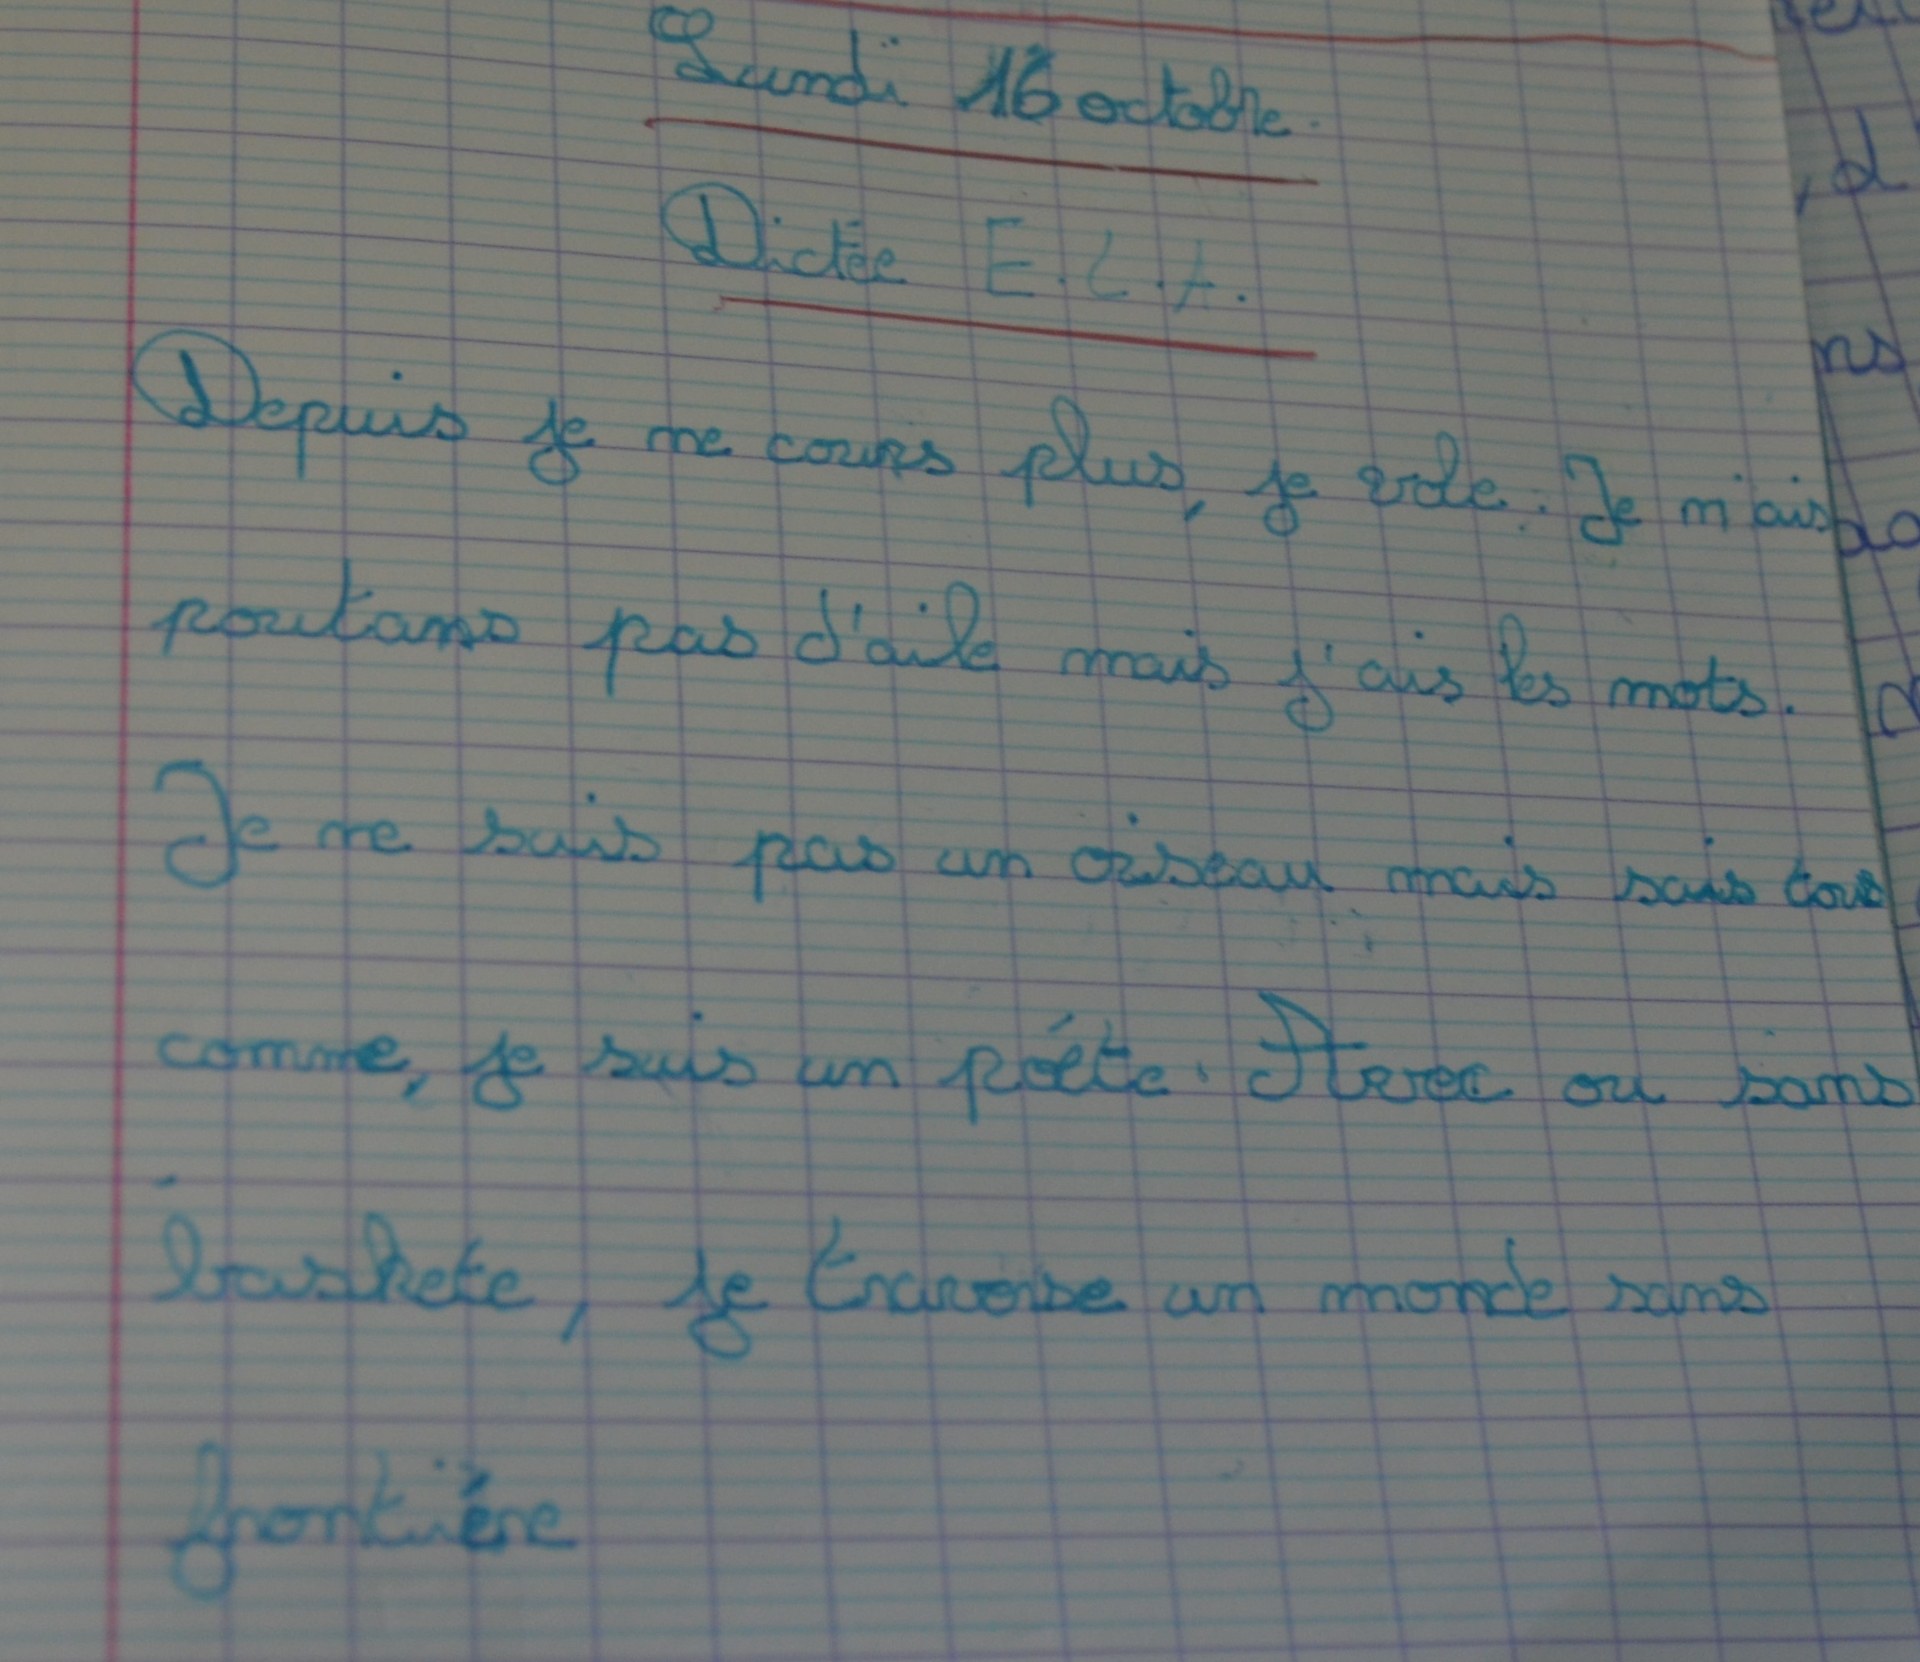 Lundi 16 octobre.
Dictée E.L.A.
Depuis je ne cours plus, je vole. Je n'ais
poutans pas d'aile mais j'ais les mots.
Je ne suis pas un oiseau mais sais tous
comme, je suis un poéte. Avec ou sans
baskete, je traverse un monde sans
frontière